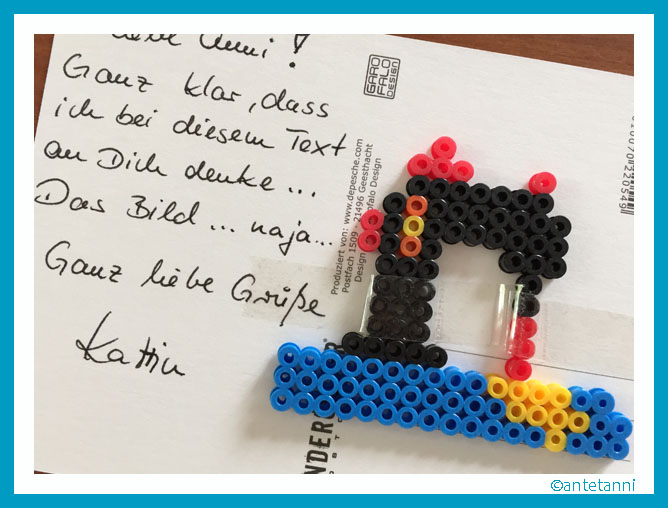 Anni!
Ganz klar, dass
ich bei diesem Text
an Dich denke...
Das Bild... naja...
Ganz liebe Grüße
Katrin
GARO
FALO
DESIGN
Produziert von: www.depesche.com
Postfach 1509 · 21496 Geesthacht
Design
ofalo Design
©antetanni